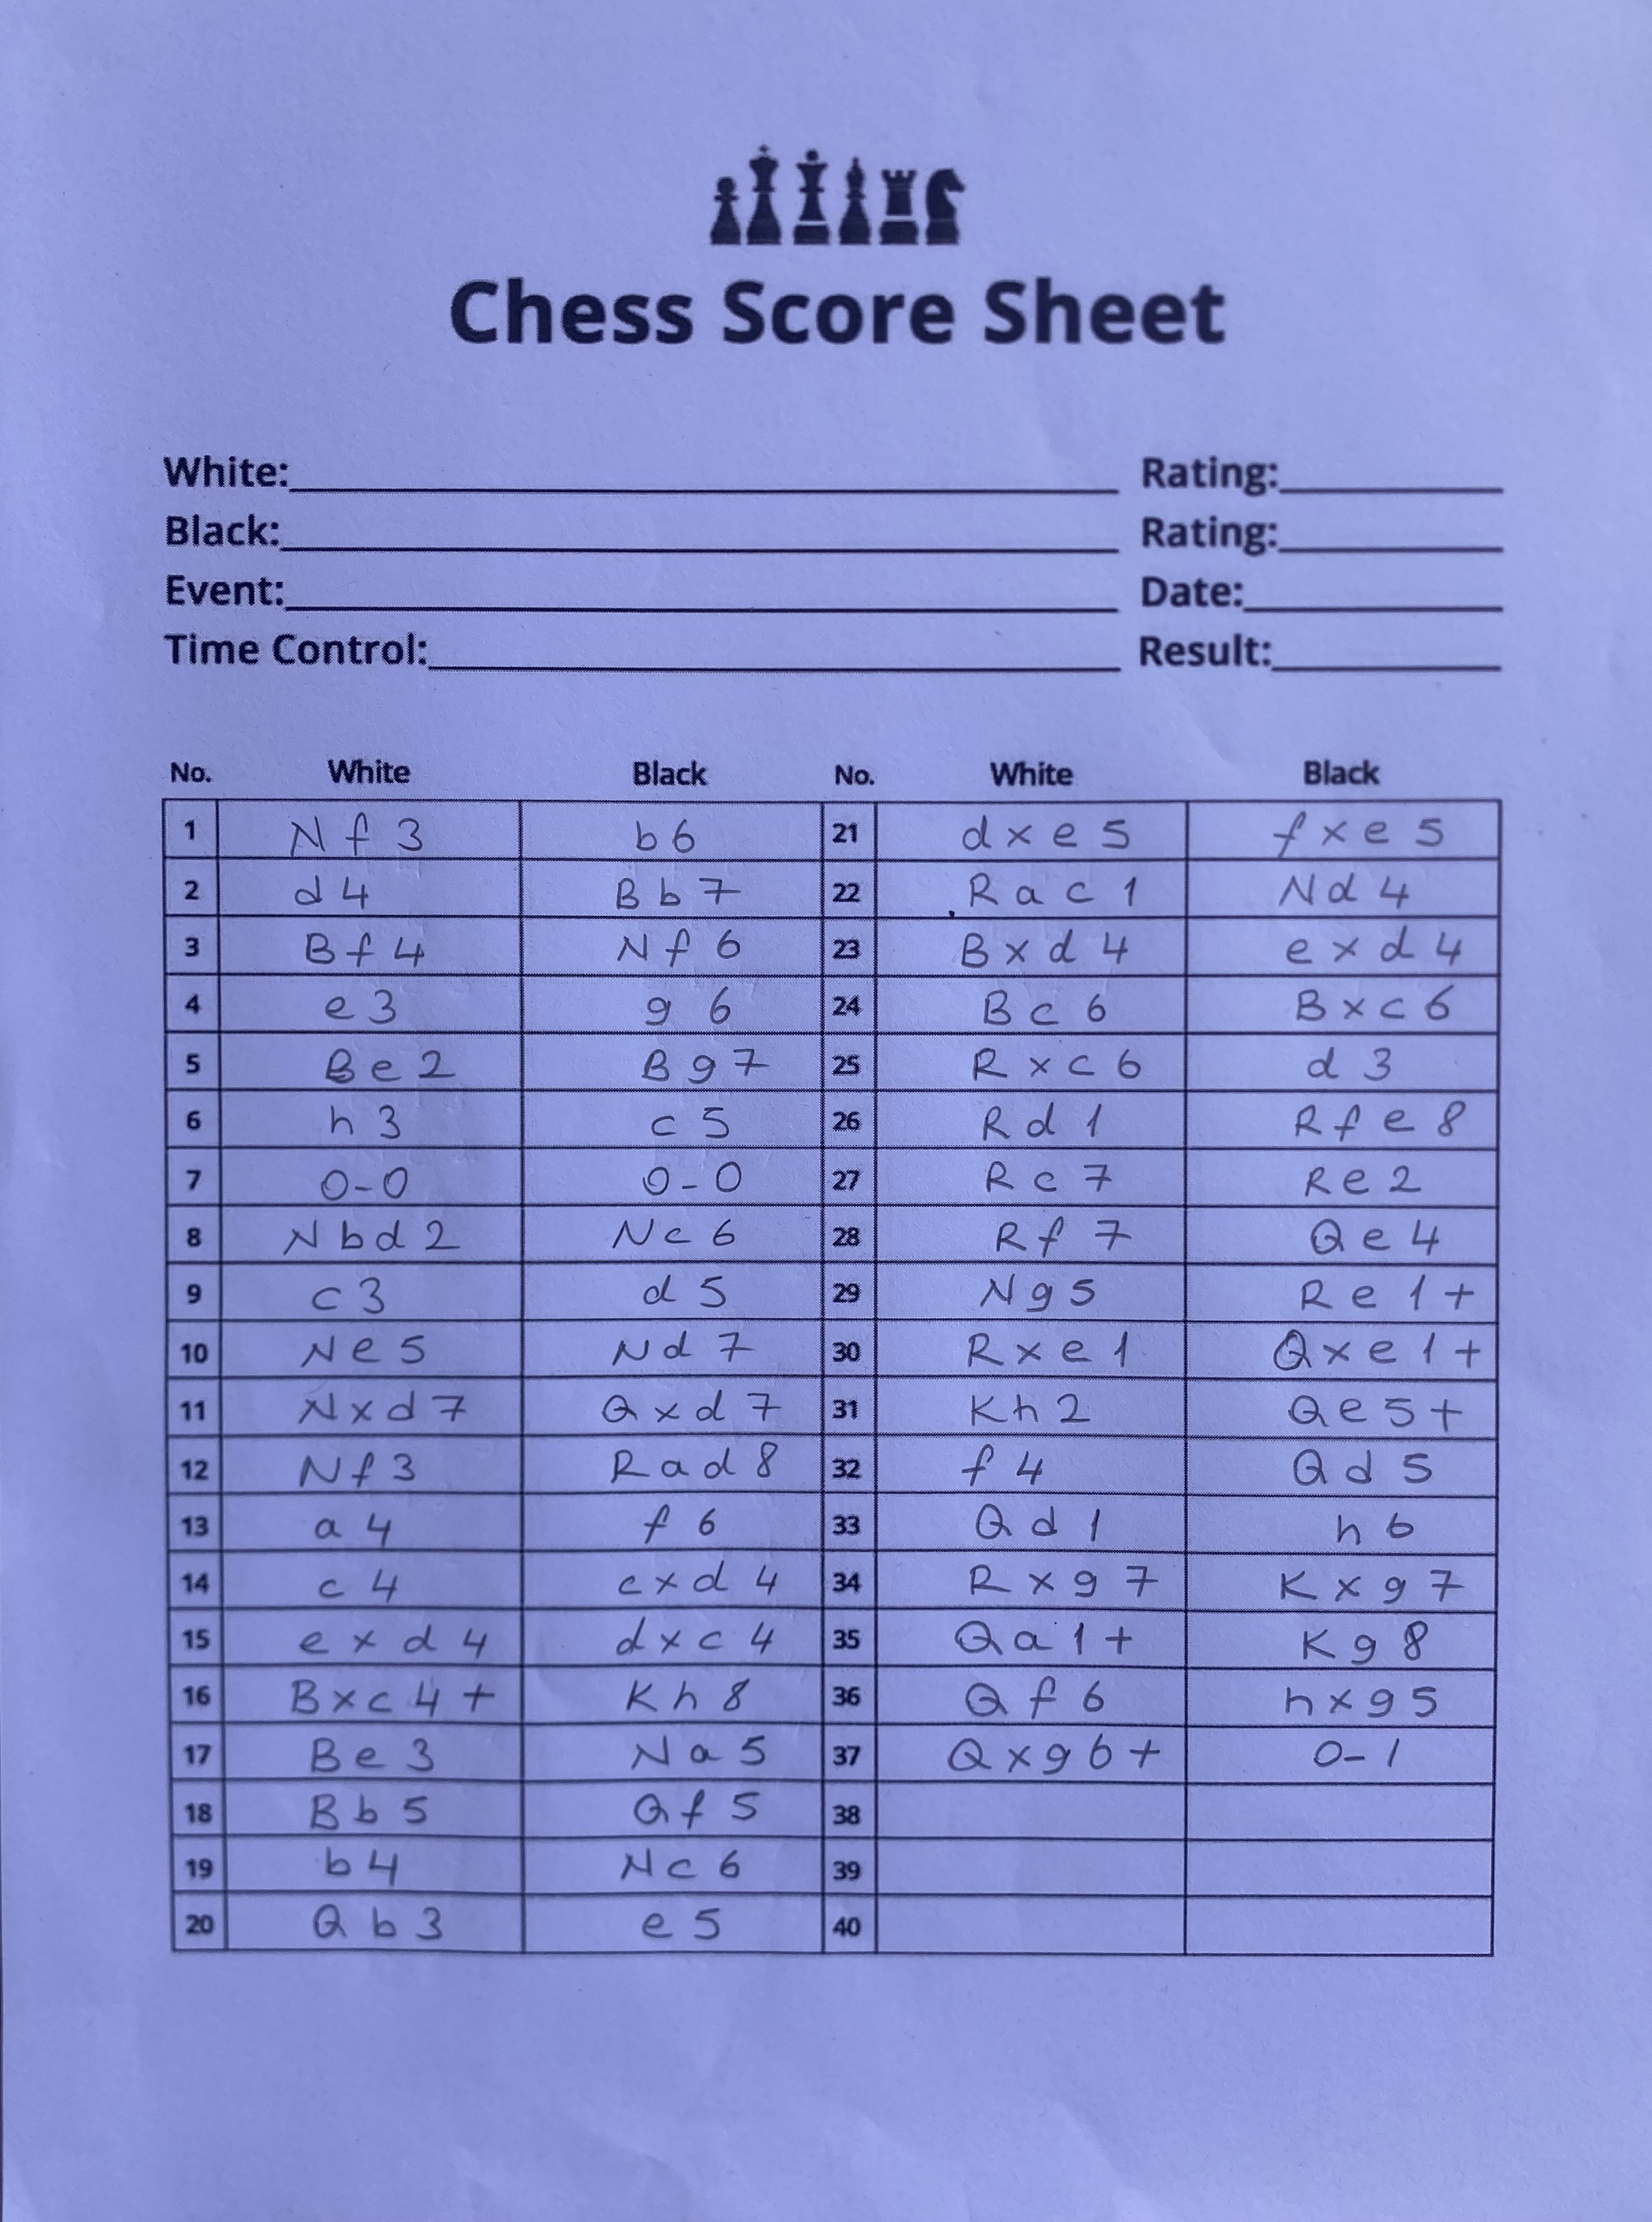 Chess Score Sheet
White: Rating:
Black: Rating:
Event: Date:
Time Control: Result:
No. White Black No. White Black
1 Nf3 b6 21 dxe5 fxe5
2 d4 Bb7 22 Rac1 Nd4
3 Bf4 Nf6 23 Bxd4 exd4
4 e3 g6 24 Bc6 Bxc6
5 Be2 Bg7 25 Rxc6 d3
6 h3 c5 26 Rd1 Rfe8
7 0-0 0-0 27 Rc7 Re2
8 Nbd2 Nc6 28 Rf7 Qe4
9 c3 d5 29 Ng5 Re1+
10 Ne5 Nd7 30 Rxe1 Qxe1+
11 Nxd7 Qxd7 31 Kh2 Qe5+
12 Nf3 Rad8 32 f4 Qd5
13 a4 f6 33 Qd1 h6
14 c4 cxd4 34 Rxg7 Kxg7
15 exd4 dxc4 35 Qa1+ Kg8
16 Bxc4+ Kh8 36 Qf6 hxg5
17 Be3 Na5 37 Qxg6+ 0-1
18 Bb5 Qf5 38
19 b4 Nc6 39
20 Qb3 e5 40